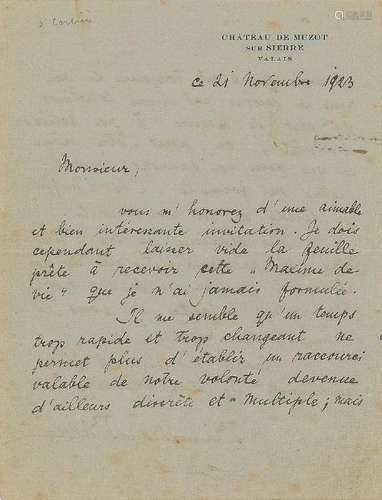 CHÂTEAU DE MUZOT
SUR SIERRE
VALAIS
ce 21 Novembre 1923
Monsieur,
vous m'honorez d'une aimable
et bien intéressante invitation. Je dois
cependant laisser vide la feuille
prête à recevoir cette „Maxime de-
vie" que je n'ai jamais formulée.
Il me semble qu'un temps
trop rapide et trop changeant ne
permet plus d'établir un raccourci
valable de notre volonté devenue
d'ailleurs discrète et multiple; mais